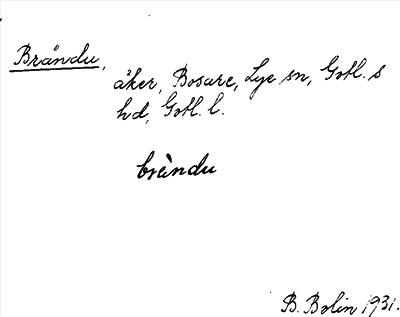 Brändu,
åker, Bosare, Lye sn, Gotl. s
hd, Gotl. l.
bràndu
B. Bolin 1931.